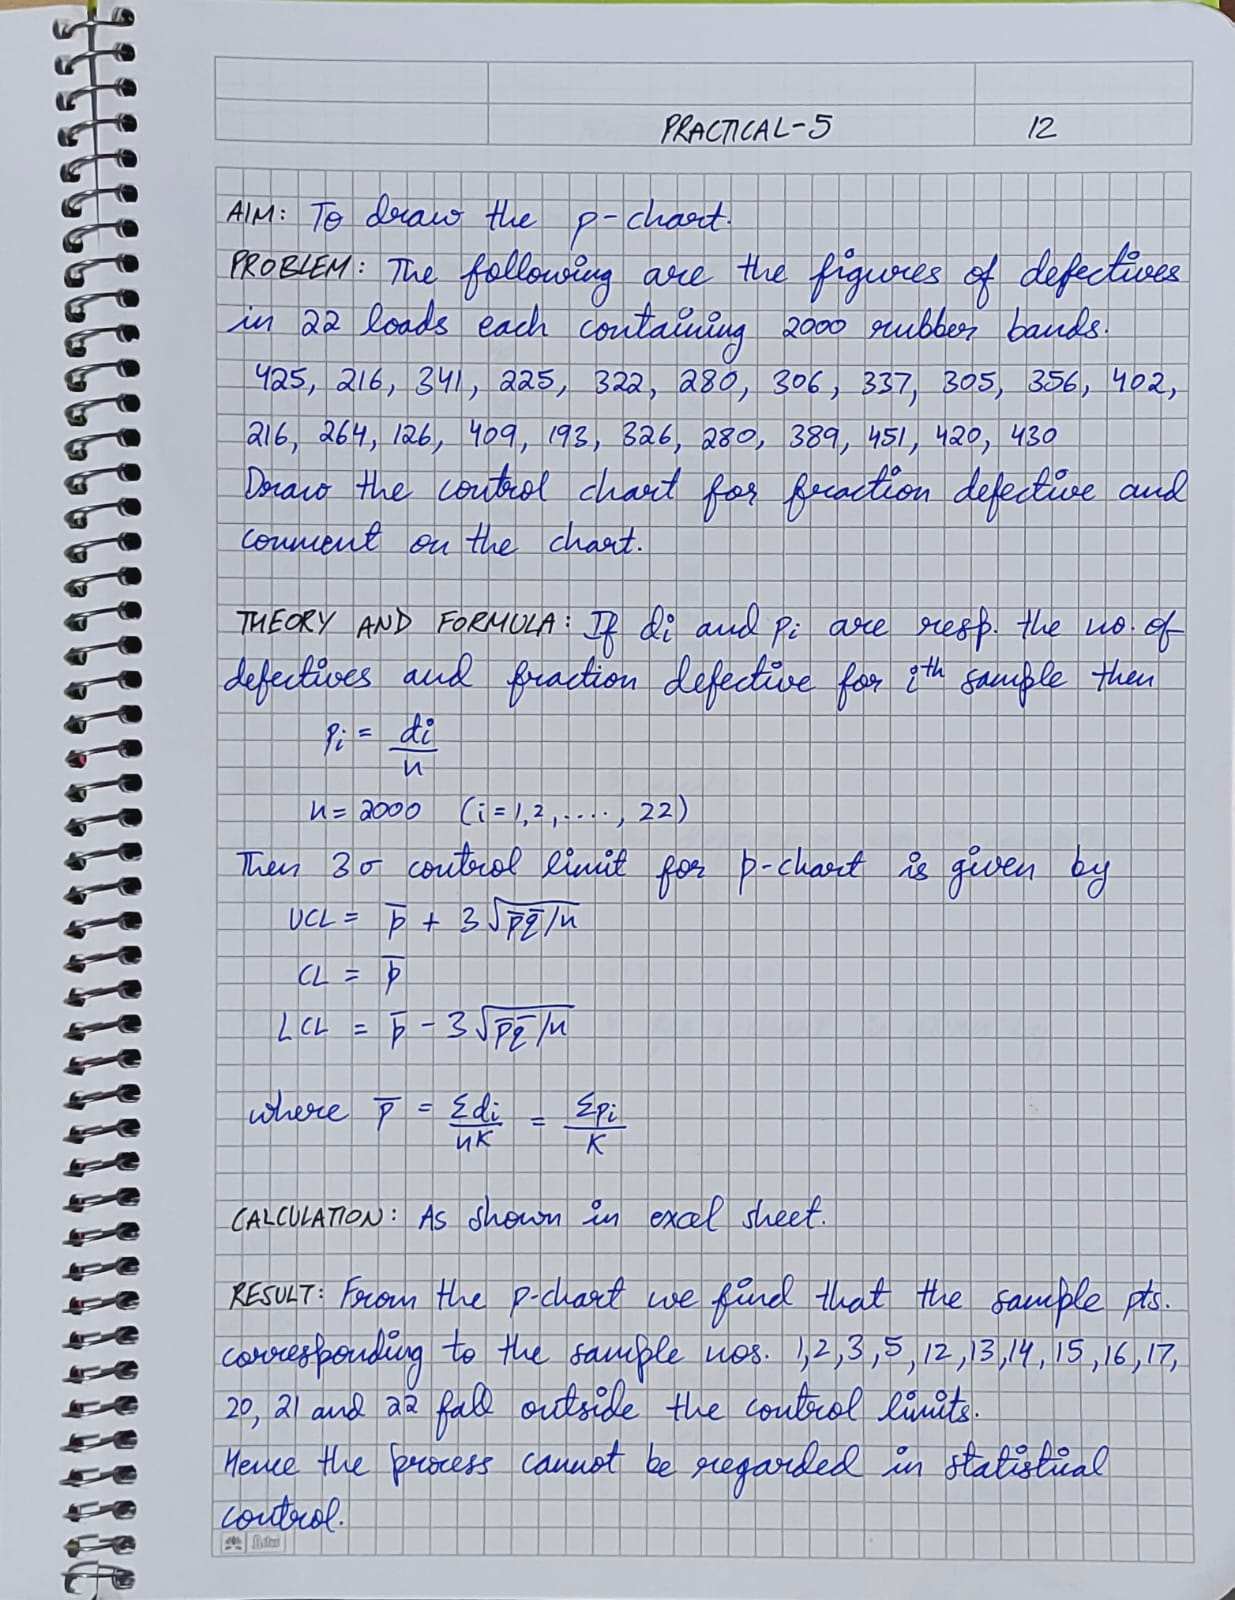 PRACTICAL-5 12
AIM: To draw the p-chart.
PROBLEM: The following are the figures of defectives
in 22 loads each containing 2000 rubber bands.
425, 216, 341, 225, 322, 280, 306, 337, 305, 356, 402,
216, 264, 126, 409, 193, 326, 280, 389, 451, 420, 430
Draw the control chart for fraction defective and
comment on the chart.
THEORY AND FORMULA: If di and pi are resp. the no. of
defectives and fraction defective for ith sample then
pi = di/n
n = 2000 (i = 1,2,...., 22)
Then 3σ control limit for p-chart is given by
UCL = p̅ + 3√p̅q̅/n
CL = p̅
LCL = p̅ - 3√p̅q̅/n
where p̅ = Σdi/nK = Σpi/K
CALCULATION: As shown in excel sheet.
RESULT: From the p-chart we find that the sample pts.
corresponding to the sample nos. 1,2,3,5,12,13,14,15,16,17,
20, 21 and 22 fall outside the control limits.
Hence the process cannot be regarded in statistical
control.